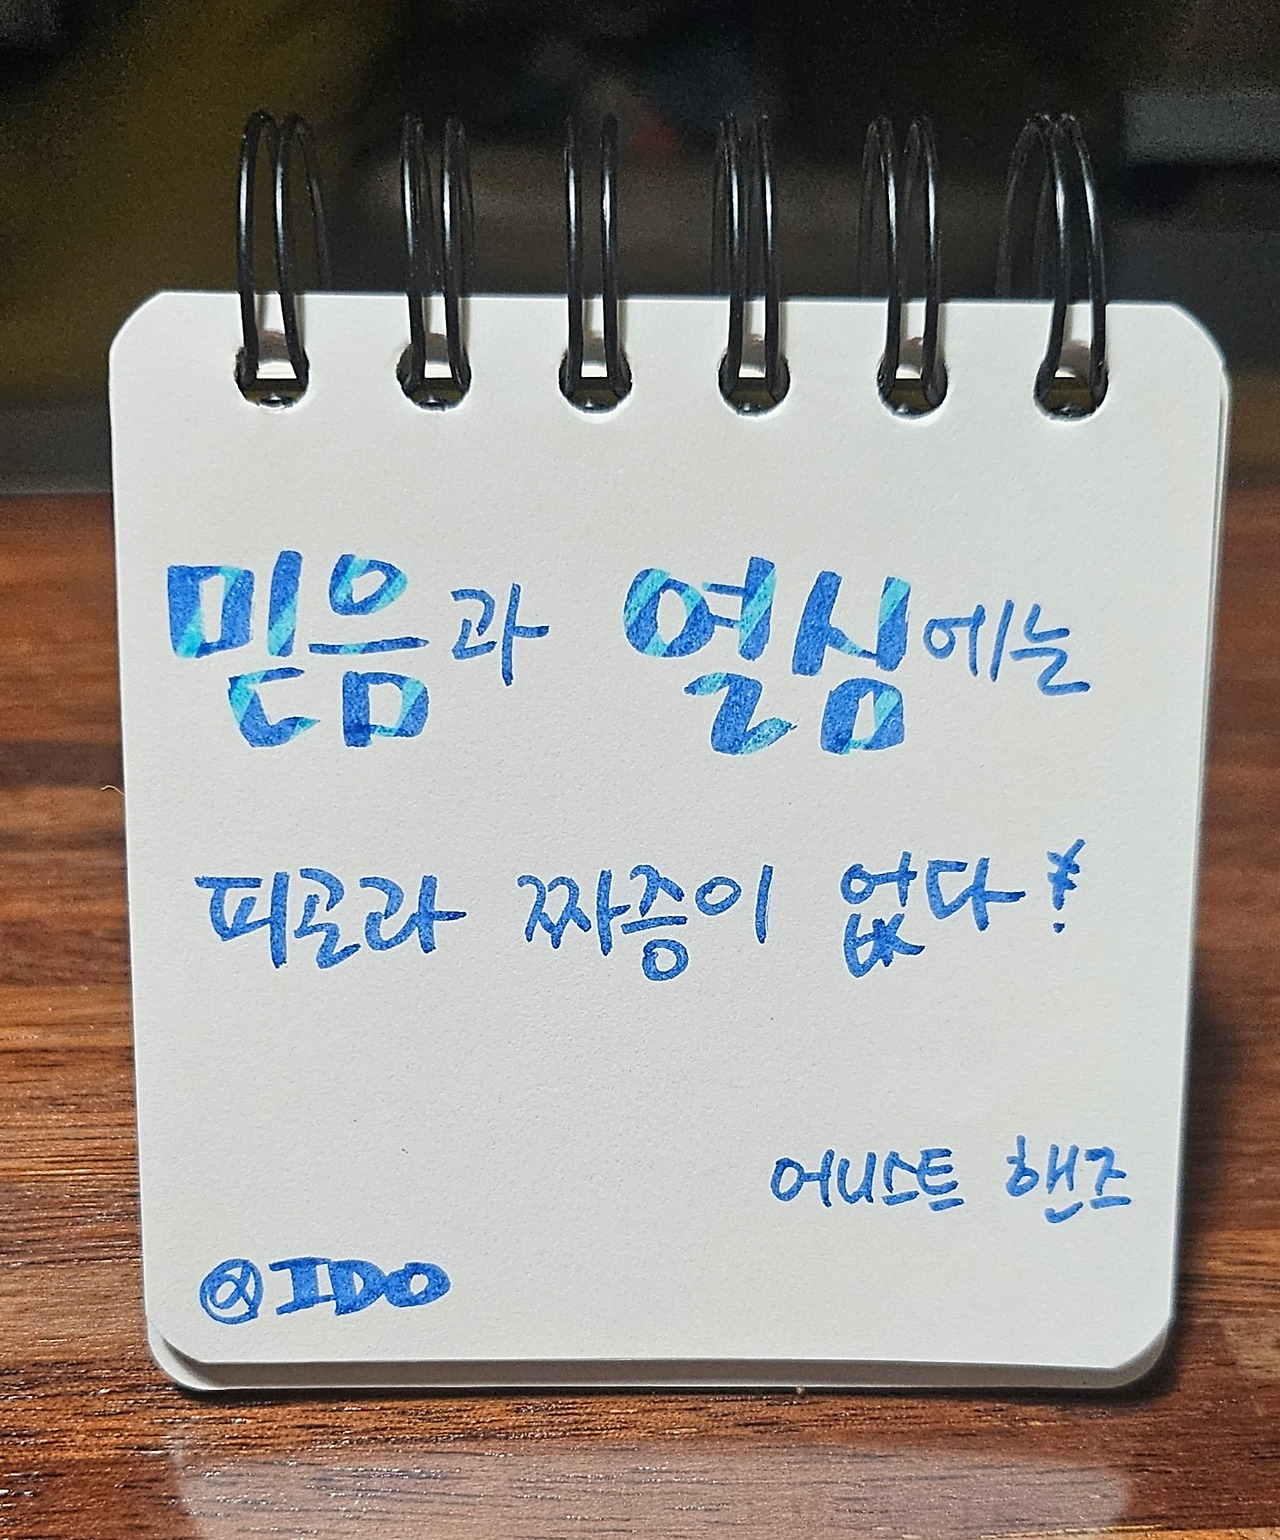 믿음과 열심에는
피로라 짜증이 없다!
어니스트 핸즈
@IDO